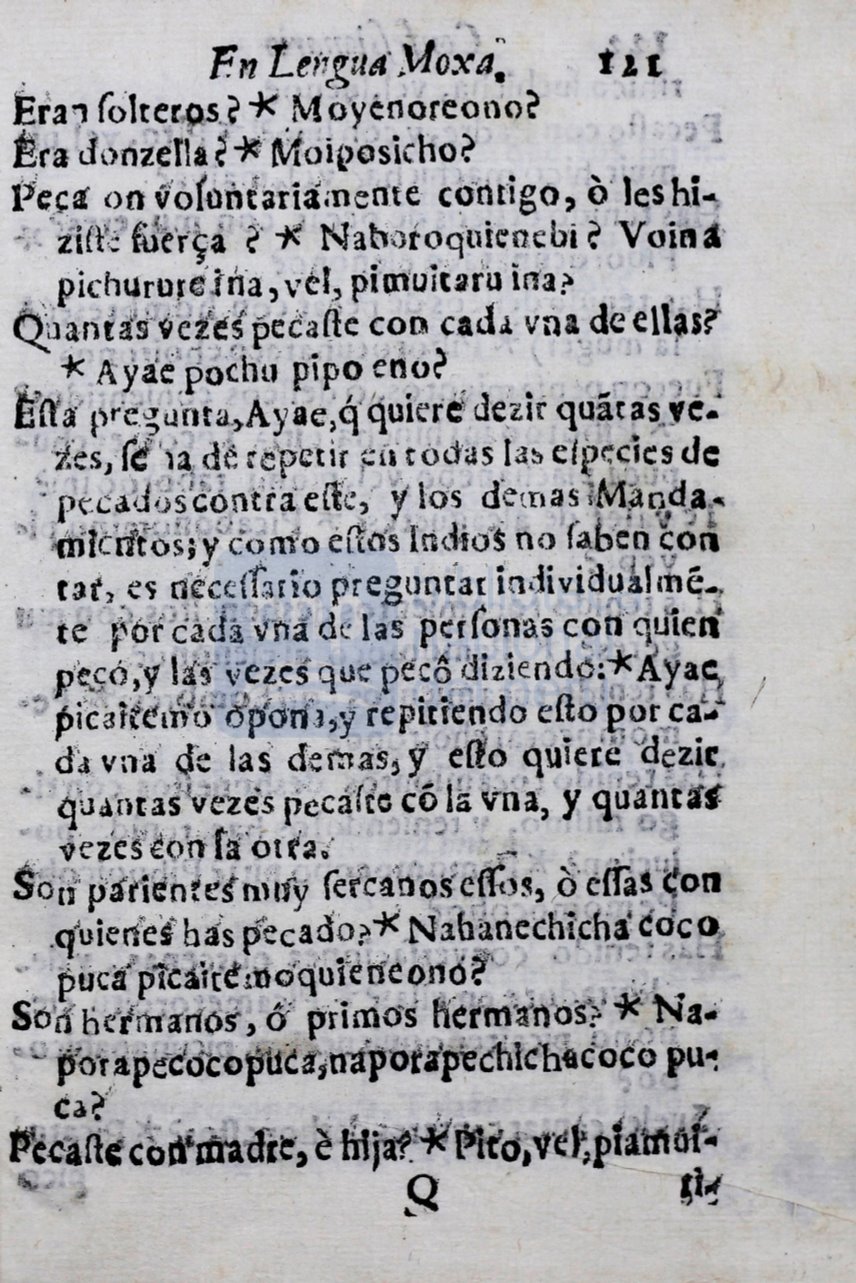 En Lengua Moxa. 121
Eran solteros? * Moyenoreono?
Era donzella? * Moiposicho?
Pecaron voluntariamente contigo, ò les hi-
ziste fuerça? * Naboroquienebi? Voina
pichurure ina, vel, pimuitaru ina?
Quantas vezes pecaste con cada vna de ellas?
* Ayae pochu pipo eno?
Esta pregunta, Ayae, q́ quiere dezir quãtas ve-
zes, se ha de repetir en todas las especies de
pecados contra este, y los demas Manda-
mientos; y como estos Indios no saben con
tar, es necessario preguntar individualmẽ-
te por cada vna de las personas con quien
pecó, y las vezes que pecô diziendo: * Ayae
picaitemo opona, y repitiendo esto por ca-
da vna de las demas, y esto quiere dezir
quantas vezes pecaste cõ la vna, y quantas
vezes con la otra.
Son parientes muy sercanos essos, ò essas con
quienes has pecado? * Nahanechicha coco
puca picaitemoquieneono?
Son hermanos, ó primos hermanos? * Na-
porapecocopuca, naporapechichacoco pu-
ca?
Pecaste con madre, è hija? * Pito, vel, piamoi-
Q